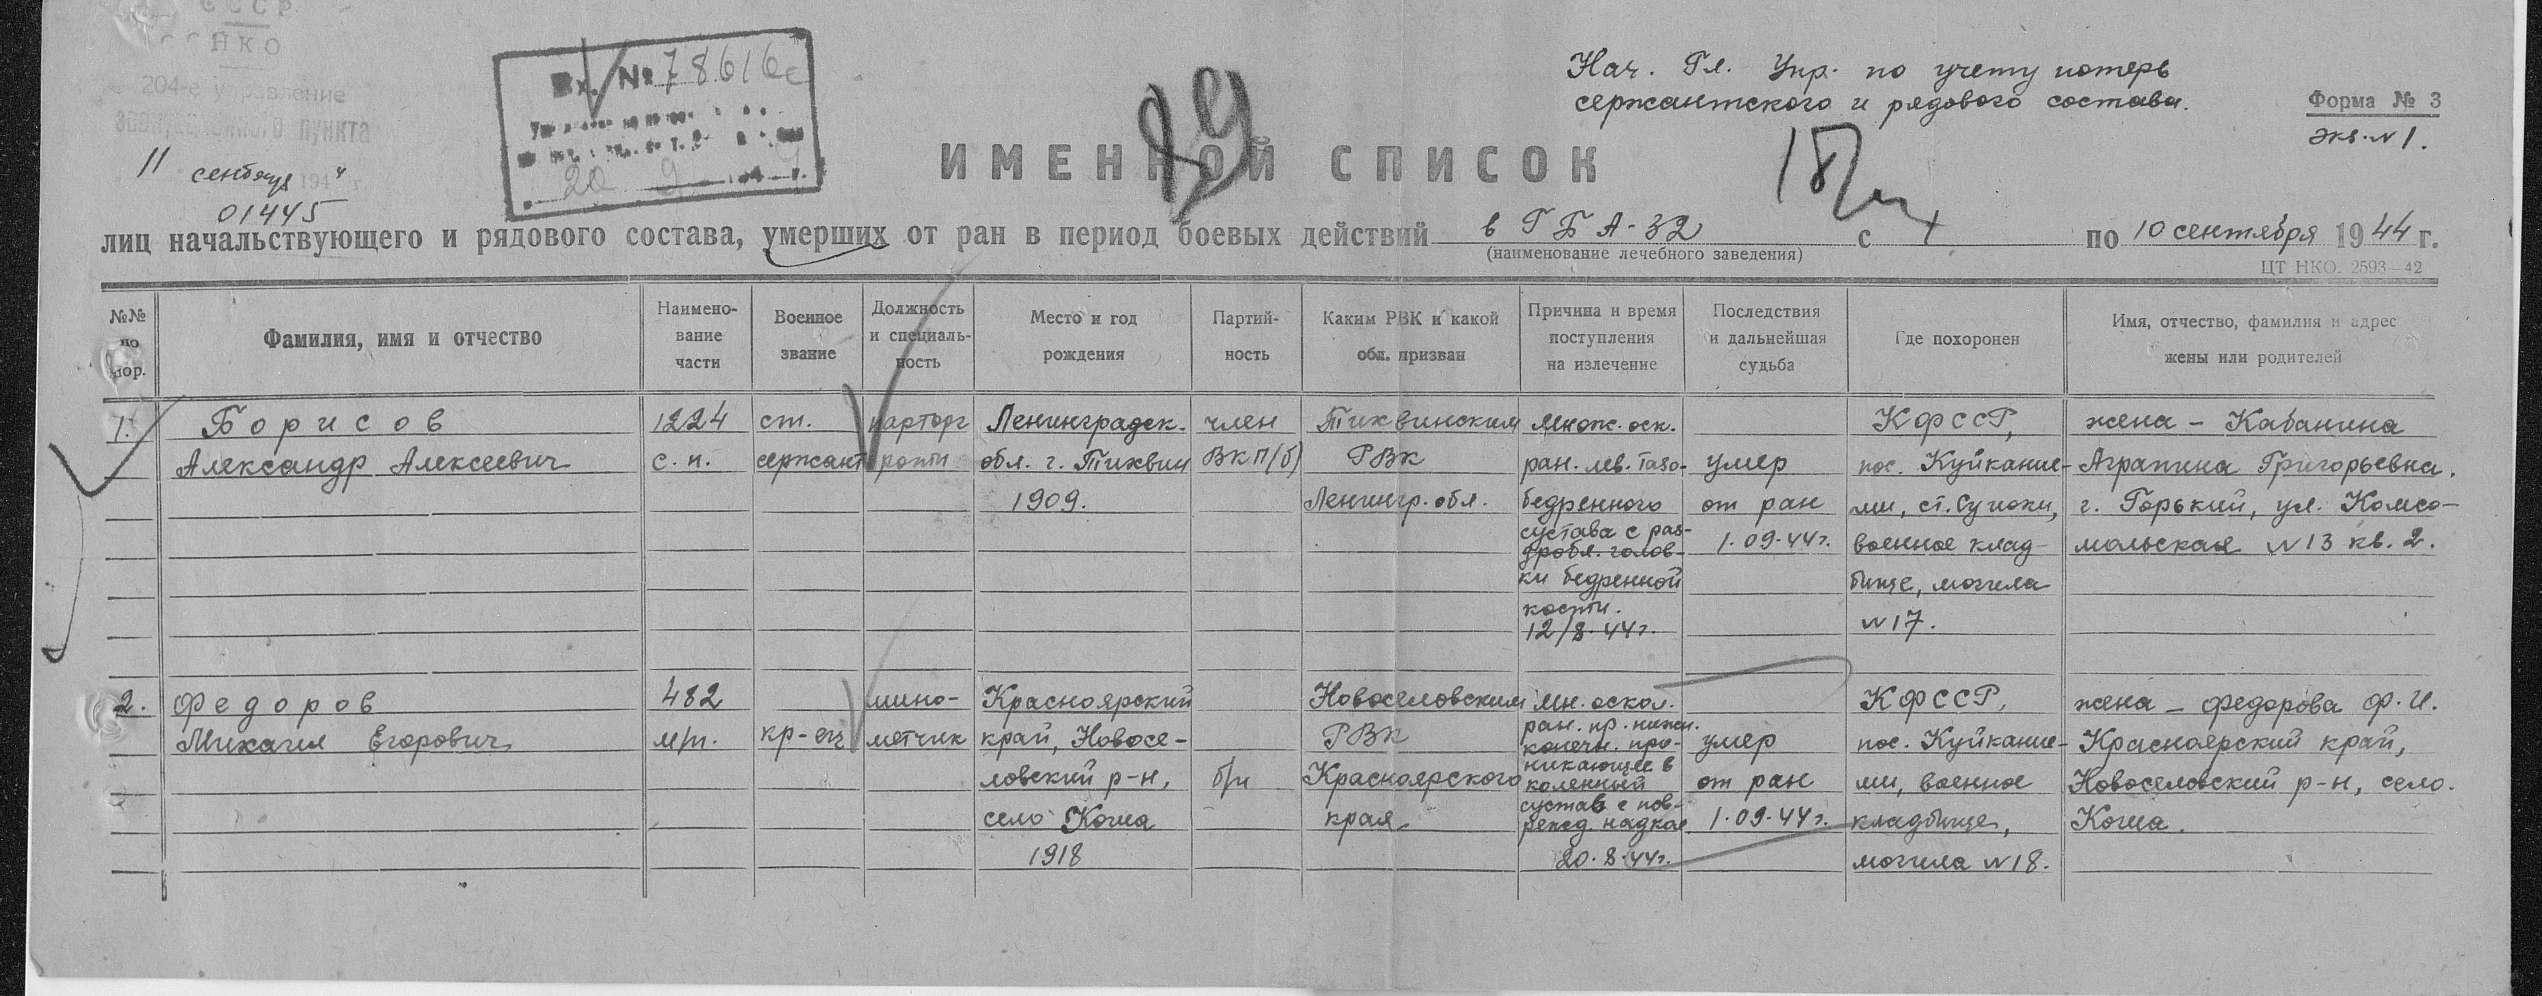 СССР
НКО
204-е управление
эвакуационного пункта
11 сентября 1944 г
01445
Вх. № 78616с
20 9
89
Нач. Гл. Упр. по учету потерь
сержантского и рядового состава.
Форма № 3
экз. N 1.
ИМЕННОЙ СПИСОК
лиц начальствующего и рядового состава, умерших от ран в период боевых действий в ГБА-32 с 1 по 10 сентября 1944 г.
(наименование лечебного заведения)
ЦТ НКО. 2593—42
№№ по пор.
Фамилия, имя и отчество
Наимено-
вание
части
Военное
звание
Должность
и специаль-
ность
Место и год
рождения
Партий-
ность
Каким РВК и какой
обл. призван
Причина и время
поступления
на излечение
Последствия
и дальнейшая
судьба
Где похоронен
Имя, отчество, фамилия и адрес
жены или родителей
1.
Борисов
Александр Алексеевич
1224
с.п.
ст.
сержант
парторг
роты
Ленинградск.
обл. г. Тихвин
1909.
член
ВКП(б)
Тихвинским
РВК
Ленингр. обл.
Множ. оск.
ран. лев. тазо-
бедренного
сустава с раз-
дробл. голов-
ки бедренной
кости.
12/8.44г.
умер
от ран
1.09.44г.
КФССР,
пос. Куйкание-
ми, ст. Суиоки,
военное клад-
бище, могила
N17.
жена – Кабанина
Аграпина Григорьевна.
г. Горький, ул. Комсо-
мольская N13 кв. 2.
2.
Федоров
Михаил Егорович
482
м/п.
кр-ец
мино-
метчик
Красноярский
край, Новосе-
ловский р-н,
село Кома
1918
б/п
Новоселовским
РВК
Красноярского
края
Мн. оскол.
ран. пр. нижн.
конечн. про-
никающее в
коленный
сустав с пов-
режд. надкол
20.8.44г.
умер
от ран
1.09.44г.
КФССР,
пос. Куйкание-
ми, военное
кладбище,
могила N18.
жена – Федорова Ф.И.
Красноярский край,
Новоселовский р-н, село.
Кома.